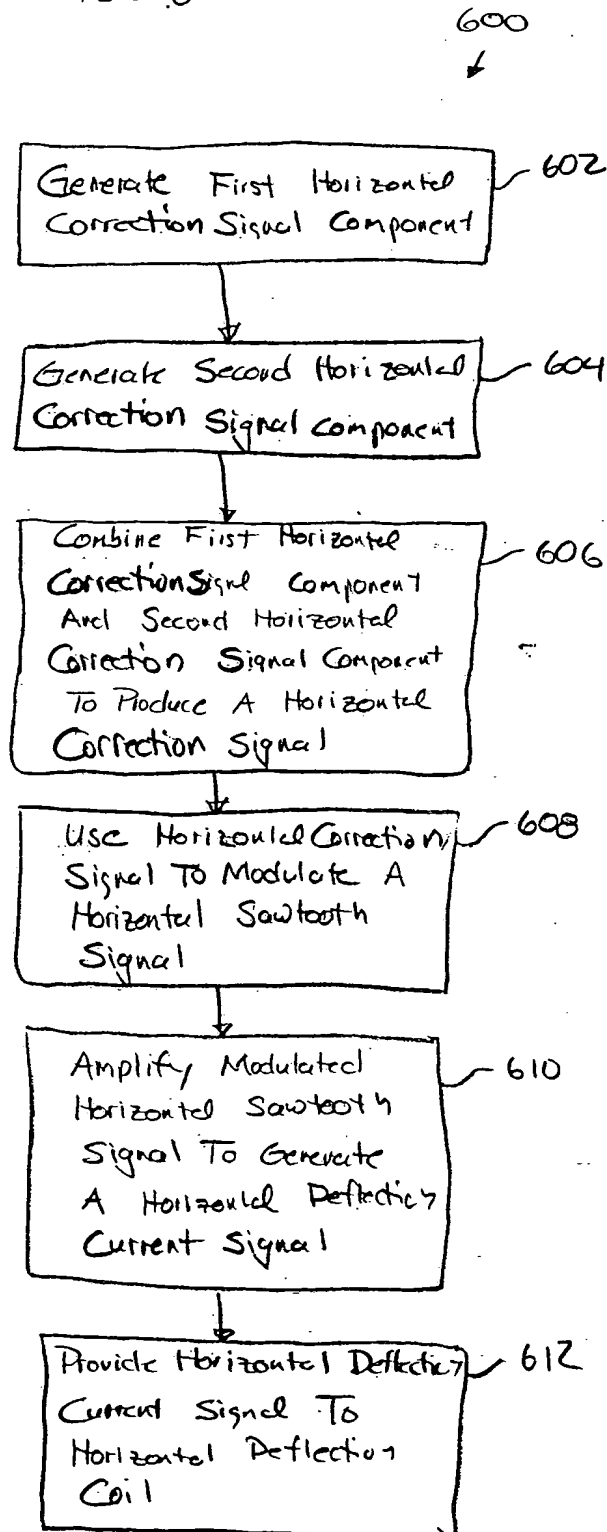 600
Generate First Horizontal
Correction Signal Component
602
Generate Second Horizontal
Correction Signal component
604
Combine First Horizontal
Correction Signl Component
And Second Horizontal
Correction Signal Component
To Produce A Horizontal
Correction Signal
606
Use Horizontal Correction
Signal To Modulate A
Horizontal Sawtooth
Signal
608
Amplify Modulated
Horizontal Sawtooth
Signal To Generate
A Horizontal Deflection
Current Signal
610
Provide Horizontal Deflection
Current Signal To
Horizontal Deflection
Coil
612